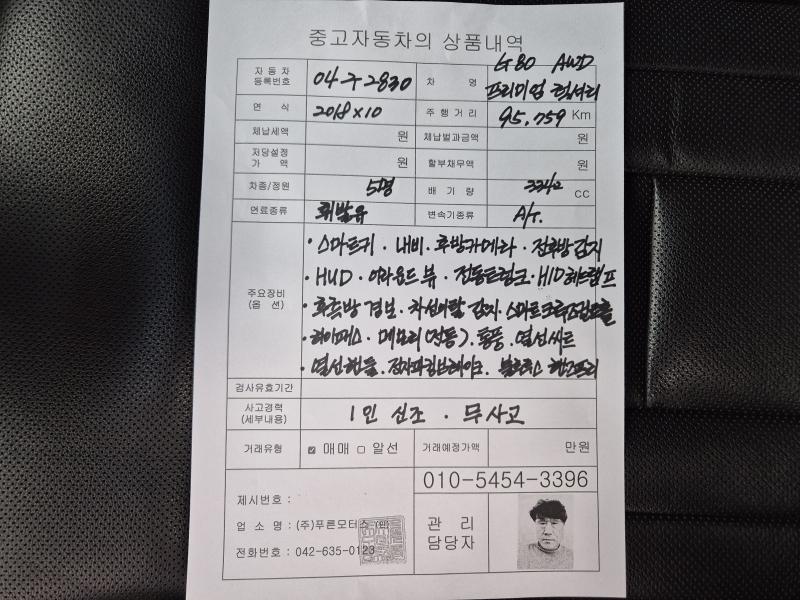 중고자동차의 상품내역
자동차등록번호 04주2830 차 명 G80 AWD 프리미엄 럭셔리
연 식 2018×10 주행거리 95,759 Km
체납세액 원 체납벌과금액 원
저당설정가 액 원 할부채무액 원
차종/정원 5명 배 기 량 3342 CC
연료종류 휘발유 변속기종류 A/T.
주요장비(옵 션)
·스마트키 · 내비 · 후방카메라 · 전후방 감지
·HUD · 어라운드 뷰 · 전동트렁크 · HID헤드램프
·후측방 경보 · 차선이탈 감지 · 스마트크루즈컨트롤
·하이패스 · 메모리(전동) · 통풍 · 열선시트
·열선핸들 · 전자파킹브레이크 · 블루투스 핸즈프리
검사유효기간
사고경력(세부내용) 1인 신조 · 무사고
거래유형 ☑ 매매 □ 알선 거래예정가액 만원
010-5454-3396
제시번호 :
업 소 명 : (주)푸른모터스 (인)
전화번호 : 042-635-0123
관 리
담당자